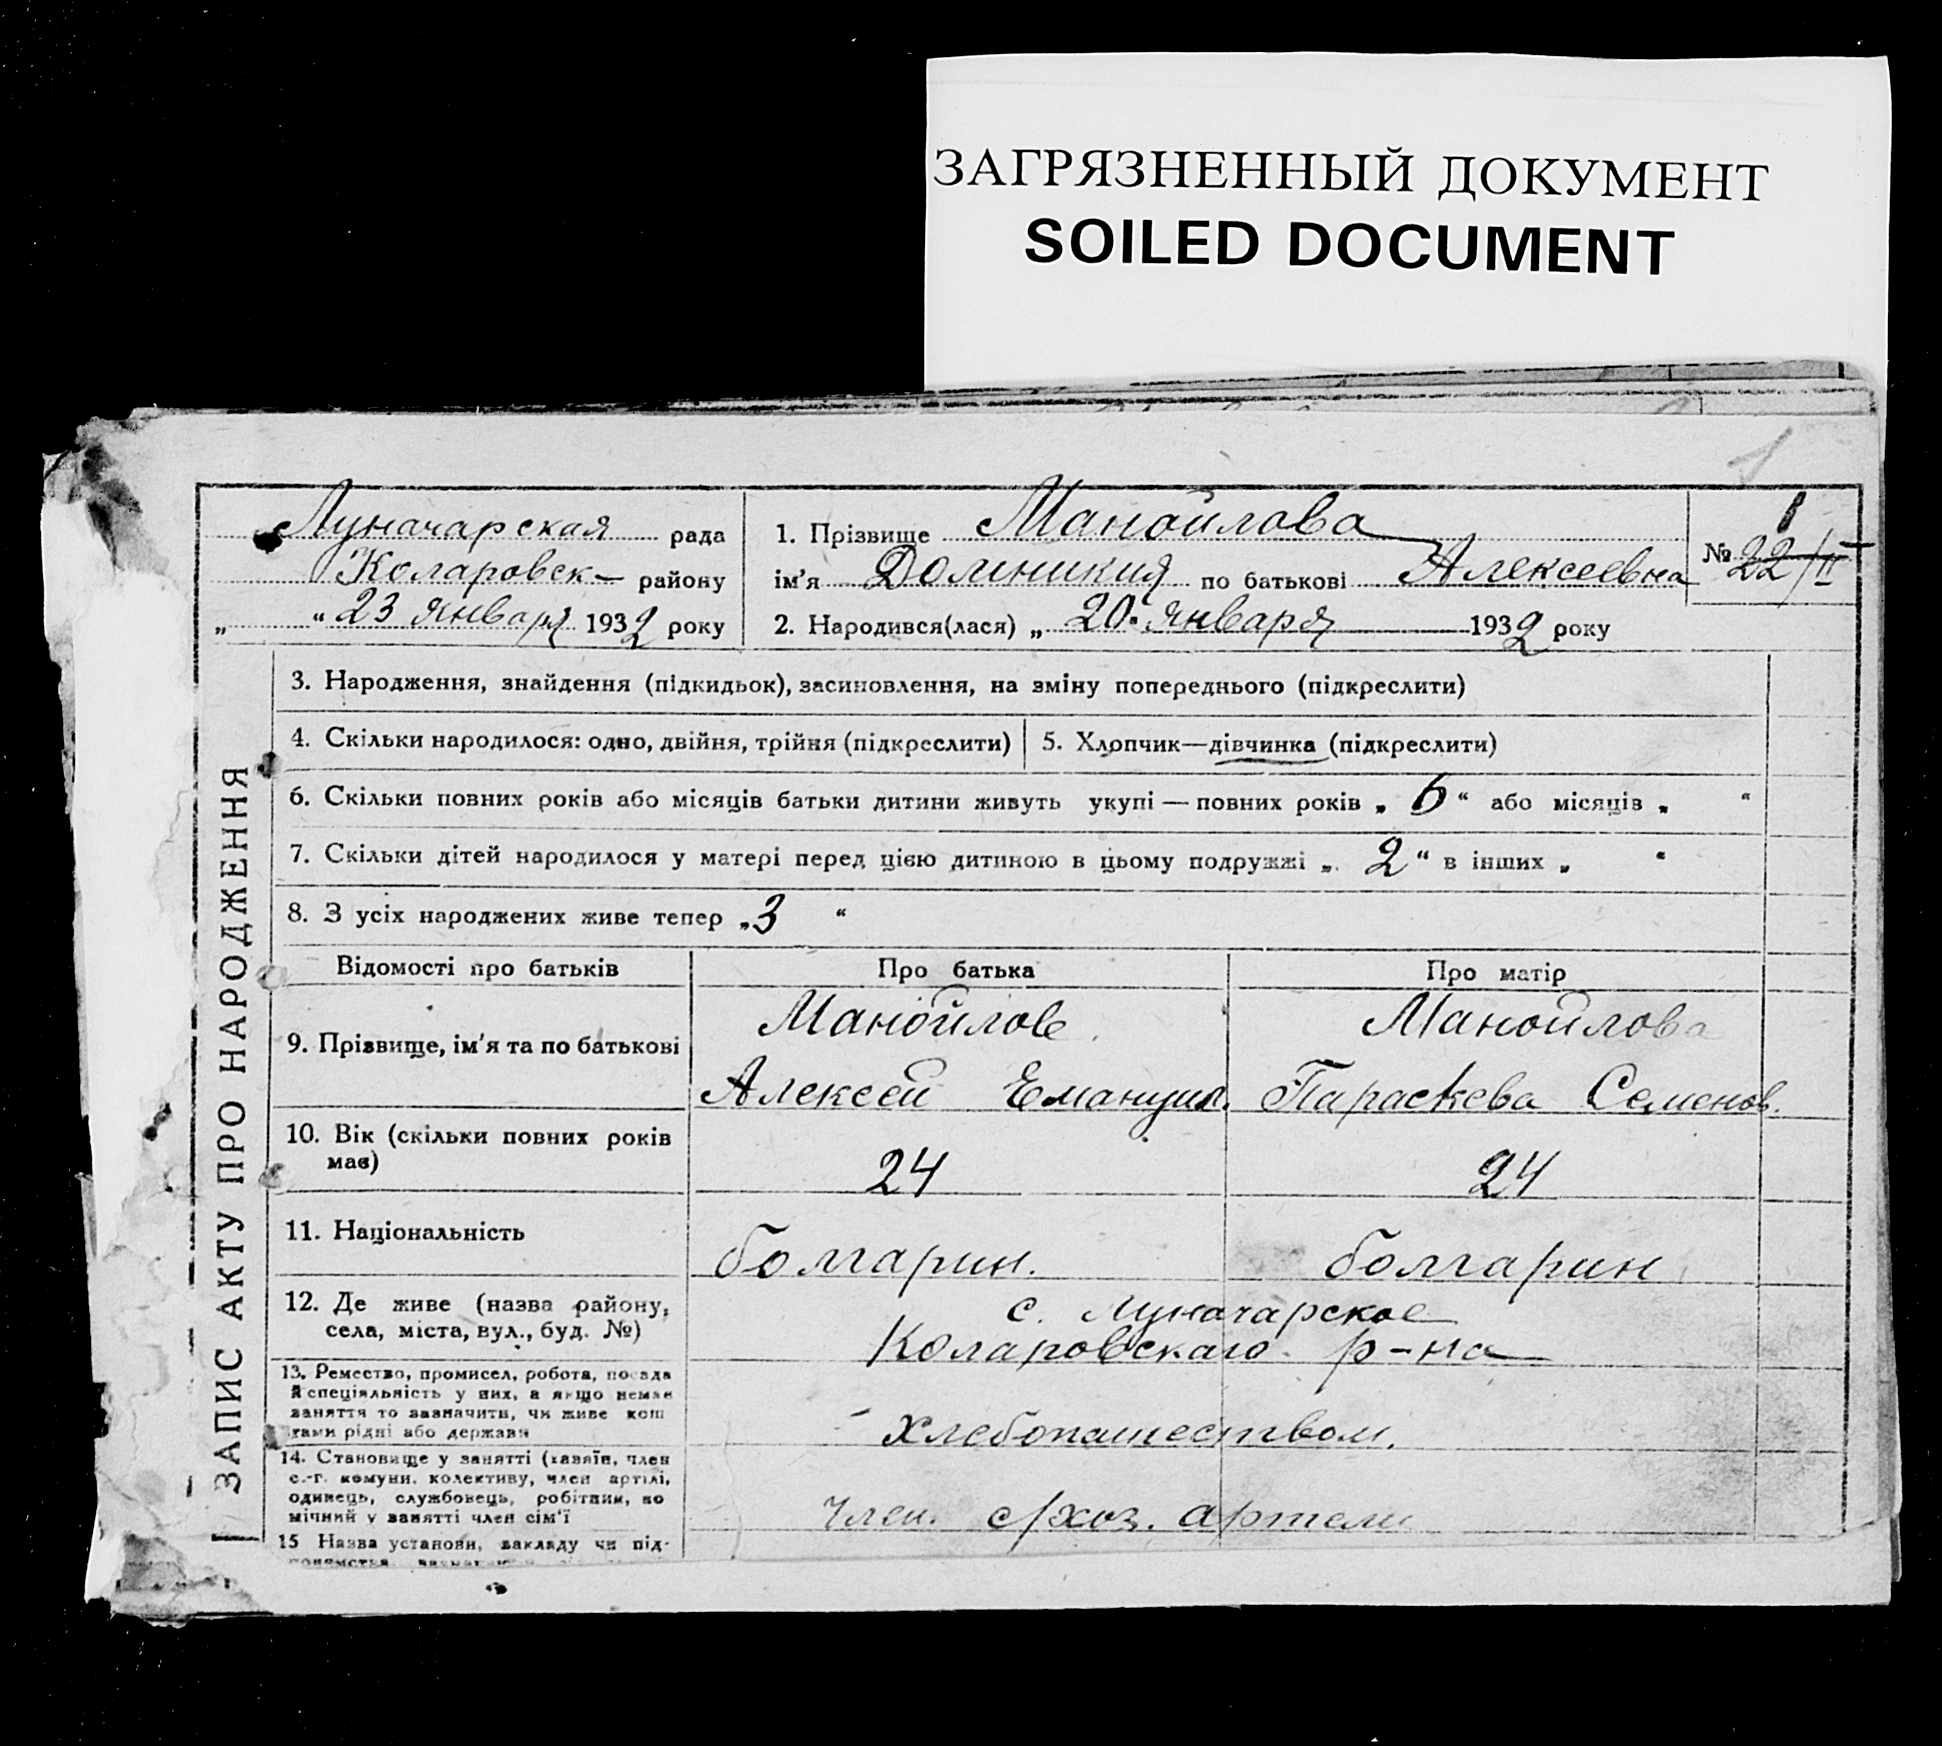 ЗАГРЯЗНЕННЫЙ ДОКУМЕНТ
SOILED DOCUMENT
1
ЗАПИС АКТУ ПРО НАРОДЖЕННЯ
Луначарская рада
Коларовск- району
„ “ 23 января 1932 року
1. Прізвище Манойлова
ім'я Доминикия по батькові Алексеевна
2. Народився(лася) „ 20 “ января 1932 року
1
№ 22/II
3. Народження, знайдення (підкидьок), засиновлення, на зміну попереднього (підкреслити)
4. Скільки народилося: одно, двійня, трійня (підкреслити)
5. Хлопчик—дівчинка (підкреслити)
6. Скільки повних років або місяців батьки дитини живуть укупі — повних років „ 6 “ або місяців „ “
7. Скільки дітей народилося у матері перед цією дитиною в цьому подружжі „ 2 “ в інших „ “
8. З усіх народжених живе тепер „ 3 “
Відомості про батьків
Про батька
Про матір
9. Прізвище, ім'я та по батькові
Манойлов
Алексей Емануил.
Манойлова
Параскева Семенов.
10. Вік (скільки повних років
має)
24
24
11. Національність
болгарин.
болгарин
12. Де живе (назва району,
села, міста, вул., буд. №)
с. Луначарское
Коларовскаго р-на
13. Ремество, промисел, робота, посада
й спеціяльність у них, а якщо немає
заняття то зазначити, чи живе кош
тами рідні або держави
хлебопашеством.
14. Становище у занятті (хазяїн, член
с.-г. комуни, колективу, член артілі,
одинець, службовець, робітник, по
мічний у занятті член сім'ї
член. с/хоз. артели
15 Назва установи, закладу чи під-